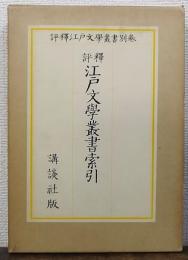 評釋江戸文學叢書別巻
評釋
江戸文學叢書索引
講談社版